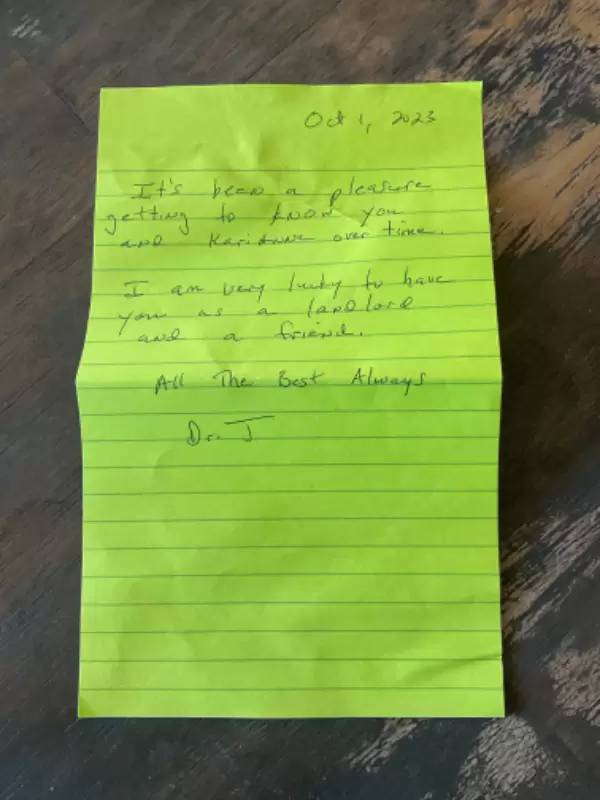 Oct 1, 2023
It's been a pleasure
getting to know you
and Karianne over time.
I am very lucky to have
you as a landlord
and a friend.
All The Best Always
Dr. J